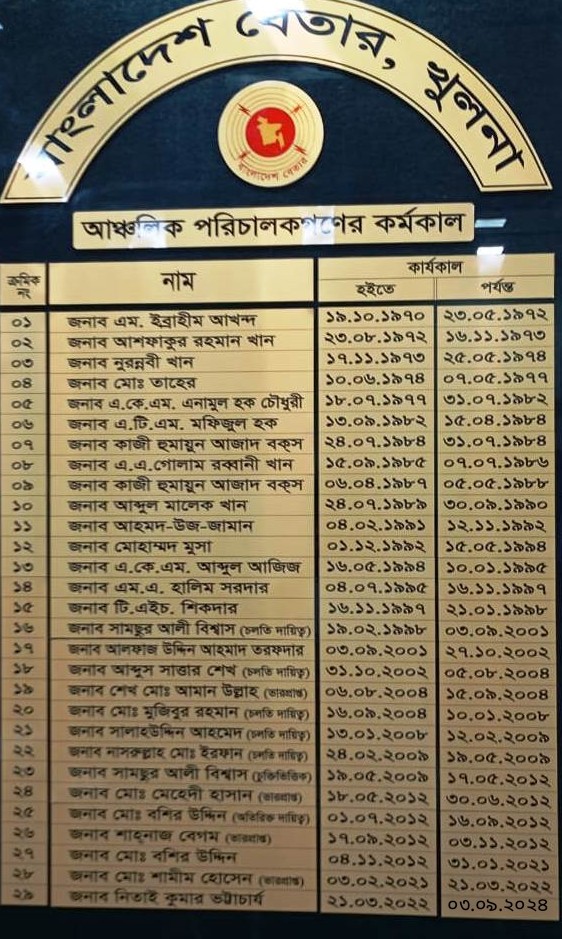 বাংলাদেশ বেতার, খুলনা
বাংলাদেশ বেতার
আঞ্চলিক পরিচালকগণের কর্মকাল
ক্রমিক নং নাম কার্যকাল
হইতে পর্যন্ত
০১ জনাব এম. ইব্রাহীম আখন্দ ১৯.১০.১৯৭০ ২৩.০৫.১৯৭২
০২ জনাব আশফাকুর রহমান খান ২৩.০৮.১৯৭২ ১৬.১১.১৯৭৩
০৩ জনাব নুরন্নবী খান ১৭.১১.১৯৭৩ ২৫.০৫.১৯৭৪
০৪ জনাব মোঃ তাহের ১০.০৬.১৯৭৪ ০৭.০৫.১৯৭৭
০৫ জনাব এ.কে.এম. এনামুল হক চৌধুরী ১৮.০৭.১৯৭৭ ৩১.০৭.১৯৮২
০৬ জনাব এ.টি.এম. মফিজুল হক ১৩.০৯.১৯৮২ ১৫.০৪.১৯৮৪
০৭ জনাব কাজী হুমায়ুন আজাদ বক্‌স ২৪.০৭.১৯৮৪ ৩১.০৭.১৯৮৪
০৮ জনাব এ.এ.গোলাম রব্বানী খান ১৫.০৯.১৯৮৫ ০৭.০৭.১৯৮৬
০৯ জনাব কাজী হুমায়ুন আজাদ বক্‌স ০৬.০৪.১৯৮৭ ০৫.০৫.১৯৮৮
১০ জনাব আব্দুল মালেক খান ২৪.০৭.১৯৮৯ ৩০.০৯.১৯৯০
১১ জনাব আহমদ-উজ-জামান ০৪.০২.১৯৯১ ১২.১১.১৯৯২
১২ জনাব মোহাম্মদ মুসা ০১.১২.১৯৯২ ১৫.০৫.১৯৯৪
১৩ জনাব এ.কে.এম. আব্দুল আজিজ ১৬.০৫.১৯৯৪ ১০.০১.১৯৯৫
১৪ জনাব এম.এ. হালিম সরদার ০৪.০৭.১৯৯৫ ১৬.১১.১৯৯৭
১৫ জনাব টি.এইচ. শিকদার ১৬.১১.১৯৯৭ ২১.০১.১৯৯৮
১৬ জনাব সামছুর আলী বিশ্বাস (চলতি দায়িত্ব) ১৯.০২.১৯৯৮ ০৩.০৯.২০০১
১৭ জনাব আলফাজ উদ্দিন আহমাদ তরফদার ০৩.০৯.২০০১ ২৭.১০.২০০২
১৮ জনাব আব্দুস সাত্তার শেখ (চলতি দায়িত্ব) ৩১.১০.২০০২ ০৫.০৮.২০০৪
১৯ জনাব শেখ মোঃ আমান উল্লাহ (ভারপ্রাপ্ত) ০৬.০৮.২০০৪ ১৫.০৯.২০০৪
২০ জনাব মোঃ মুজিবুর রহমান (চলতি দায়িত্ব) ১৬.০৯.২০০৪ ১০.০১.২০০৮
২১ জনাব সালাহউদ্দিন আহমেদ (চলতি দায়িত্ব) ১৩.০১.২০০৮ ১২.০২.২০০৯
২২ জনাব নাসরুল্লাহ মোঃ ইরফান (চলতি দায়িত্ব) ২৪.০২.২০০৯ ১৯.০৫.২০০৯
২৩ জনাব সামছুর আলী বিশ্বাস (চুক্তিভিত্তিক) ১৯.০৫.২০০৯ ১৭.০৫.২০১২
২৪ জনাব মোঃ মেহেদী হাসান (ভারপ্রাপ্ত) ১৮.০৫.২০১২ ৩০.০৬.২০১২
২৫ জনাব মোঃ বশির উদ্দিন (অতিরিক্ত দায়িত্ব) ০১.০৭.২০১২ ১৬.০৯.২০১২
২৬ জনাব শাহ্‌নাজ বেগম (ভারপ্রাপ্ত) ১৭.০৯.২০১২ ০৩.১১.২০১২
২৭ জনাব মোঃ বশির উদ্দিন ০৪.১১.২০১২ ৩১.০১.২০২১
২৮ জনাব মোঃ শামীম হোসেন (ভারপ্রাপ্ত) ০৩.০২.২০২১ ২১.০৩.২০২২
২৯ জনাব নিতাই কুমার ভট্টাচার্য ২১.০৩.২০২২ ০৩.০৯.২০২৪